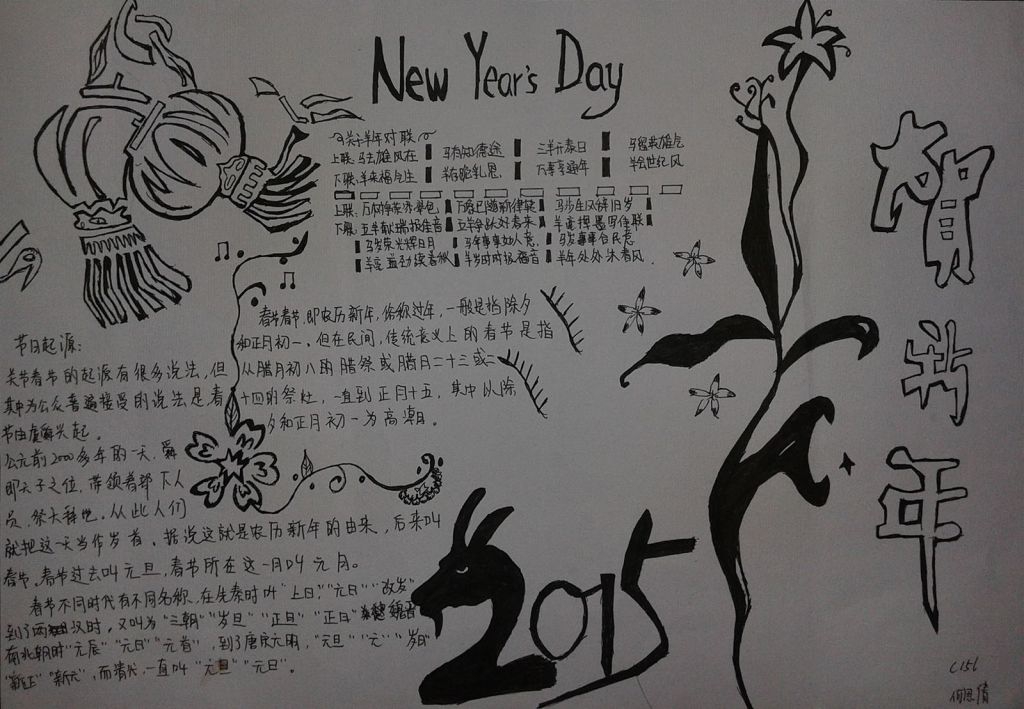 New Year's Day
关于羊年对联
上联:马去雄风在 马有知德途 三羊开泰日 马留英雄气
下联:羊来福气生 羊存跪乳恩 万事亨通年 羊会世纪风
上联:
马步生风辞旧岁
羊毫挥墨写佳联
马年事事如人意
羊岁时时报福音 羊年处处沐春风
春节春节,即农历新年,俗称过年,一般是指除夕
和正月初一,但在民间,传统意义上的春节是指
从腊月初八的腊祭或腊月二十三或二
十四的祭灶,一直到正月十五,其中以除
夕和正月初一为高潮。
节日起源:
关节春节的起源有很多说法,但
其中为公众普遍接受的说法是春
节由虞舜兴起。
公元前2000多年的一天,舜
即天子之位,带领着部下人
员,祭天拜地。从此人们
就把这一天当作岁首,据说这就是农历新年的由来,后来叫
春节,春节过去叫元旦,春节所在这一月叫元月。
春节不同时代有不同名称,在先秦时叫"上日""元日""改岁"
到了两汉时,又叫为"三朝""岁旦""正旦""正日"魏晋
南北朝时"元辰""元日""元首",到了唐宋元明,"元旦""元""岁日"
"新正""新元",而清代,一直叫"元旦""元日"。
2015
贺
羊
年
C156